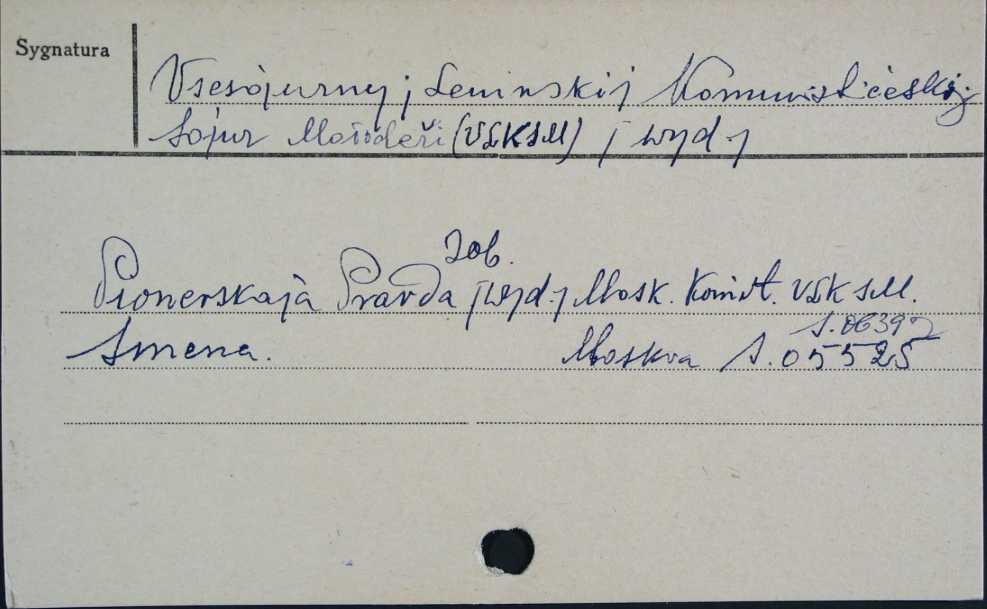 Sygnatura
Vsesojuznyj Leninskij Kommunističeskij
Sojuz Mołodeži (VLKSM) [wyd.]
Zob.
Pionerskaja Pravda [wyd.] Mosk. Komit. VLKSM.
S.06397
Smena. Moskva S.05525